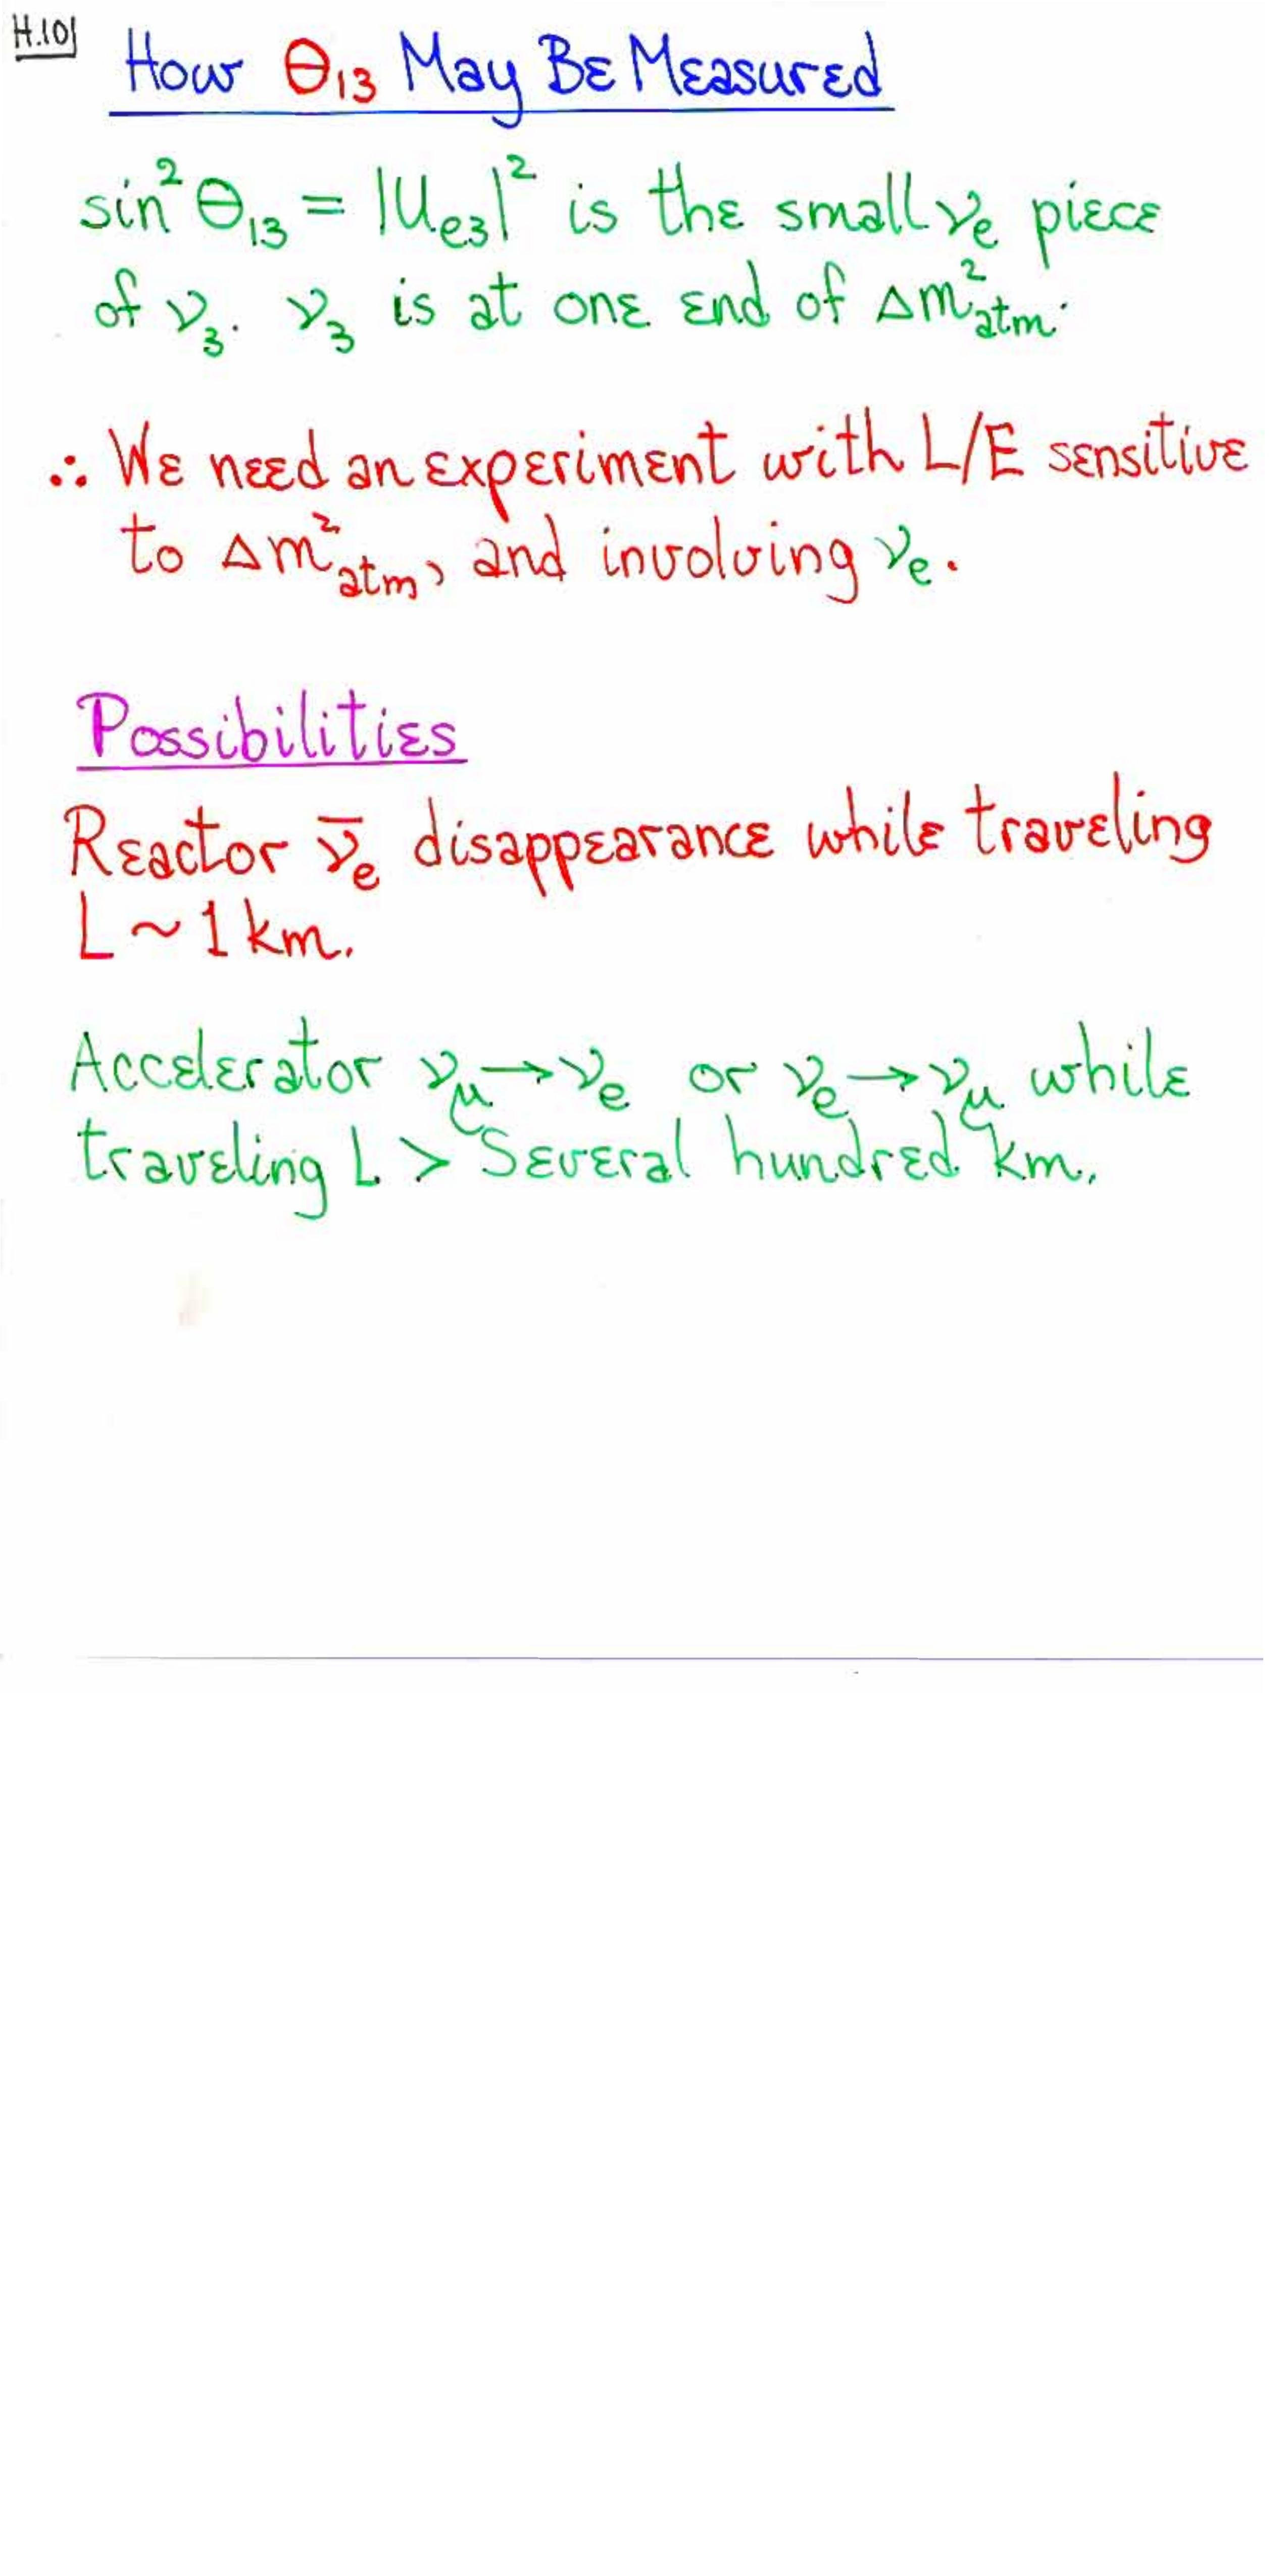 H.10
How θ₁₃ May Be Measured
sin²θ₁₃ = |Uₑ₃|² is the small νₑ piece
of ν₃. ν₃ is at one end of Δm²atm.
∴ We need an experiment with L/E sensitive
to Δm²atm, and involving νₑ.
Possibilities
Reactor ν̄ₑ disappearance while traveling
L ~ 1 km.
Accelerator νμ → νₑ or νₑ → νμ while
traveling L > Several hundred km.